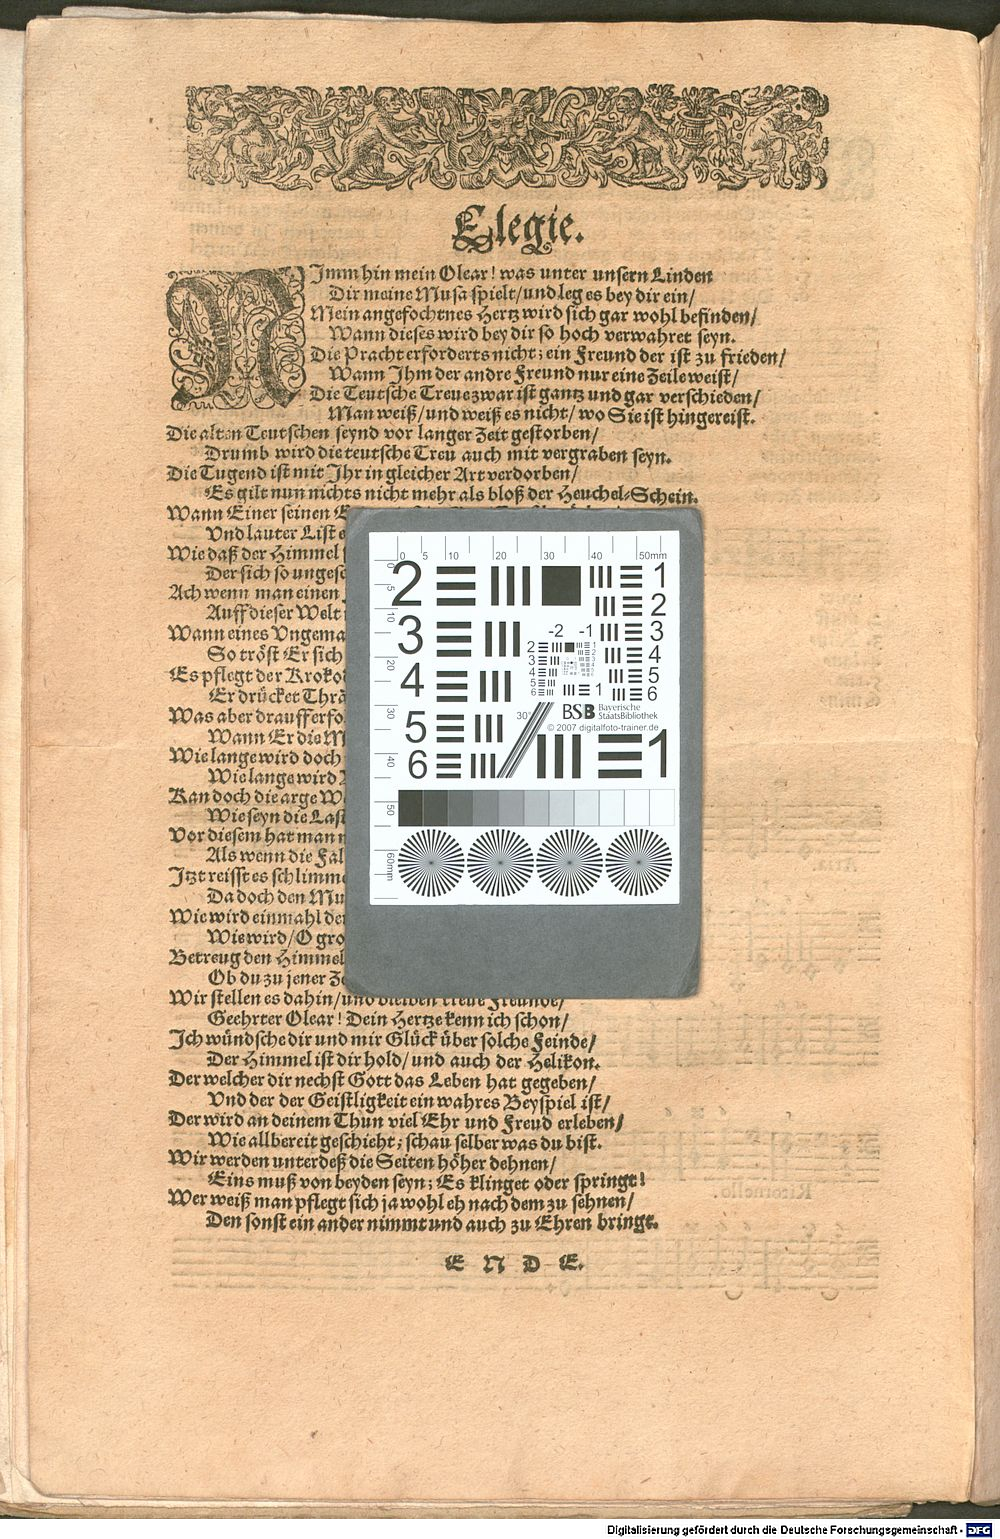 Elegie.
NImm hin mein Olear! was unter unsern Linden
Dir meine Musa spielt/ und leg es bey dir ein/
Mein angefochtnes Hertz wird sich gar wohl befinden/
Wann dieses wird bey dir so hoch verwahret seyn.
Die Pracht erforderts nicht; ein Freund der ist zu frieden/
Wann Ihm der andre Freund nur eine Zeile weist/
Die Teutsche Treue zwar ist gantz und gar verschieden/
Man weiß/ und weiß es nicht/ wo Sie ist hingereist.
Die alten Teutschen seynd vor langer Zeit gestorben/
Drumb wird die teutsche Treu auch mit vergraben seyn.
Die Tugend ist mit Ihr in gleicher Art verdorben/
Es gilt nun nichts nicht mehr als bloß der Heuchel-Schein.
Wann Einer seinen
Vnd lauter List
Wie daß der Himmel
Der sich so
Ach wenn man einen
Auff dieser Welt
Wann eines
So tröst Er sich
Es pflegt der
Er drücket
Was aber drauff
Wann Er die
Wie lange wird doch
Wie lange wird
Kan doch die arge
Wie seyn die
Vor diesem hat man
Als wenn die
Jtzt reisst es
Da doch den
Wie wird einmahl
Wie wird/ O
Betreug den Himmel
Ob du zu jener
Wir stellen es dahin/ und bleiben treue Freunde/
Geehrter Olear! Dein Hertze kenn ich schon/
Jch wündsche dir und mir Glück über solche Feinde/
Der Himmel ist dir hold/ und auch der Helikon.
Der welcher dir nechst Gott das Leben hat gegeben/
Vnd der der Geistligkeit ein wahres Beyspiel ist/
Der wird an deinem Thun viel Ehr und Freud erleben/
Wie allbereit geschieht; schau selber was du bist.
Wir werden unterdeß die Seiten höher dehnen/
Eins muß von beyden seyn; Es klinget oder springt!
Wer weiß man pflegt sich ja wohl eh nach dem zu sehnen/
Den sonst ein ander nimmt und auch zu Ehren bringt.
E N D E.
0 5 10 20 30 40 50mm
0 5 10 20 30 40 50 60mm
2 3 4 5 6
1 2 3 4 5 6
-2 -1
2 3 4 5 6
1
30°
BSB Bayerische
StaatsBibliothek
© 2007 digitalfoto-trainer.de
1
Digitalisierung gefördert durch die Deutsche Forschungsgemeinschaft - DFG